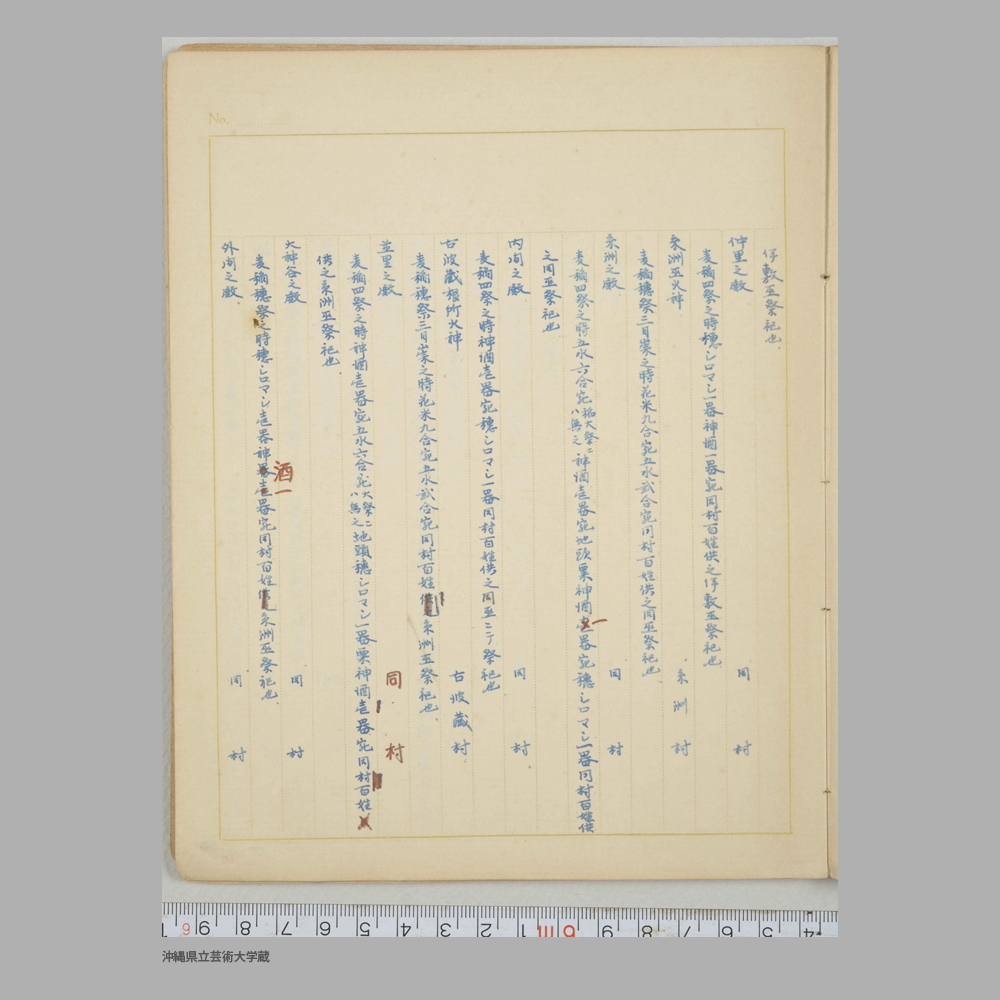 No.
伊敷巫祭祀也
仲里之殿 同村
麦稲四祭之時穂シロマシ一器神酒一器宛同村百姓供之伊敷巫祭祀也
糸洲巫火神 糸洲村
麦稲穂祭三日崇之時花米九合宛五水弐合宛同村百姓供之同巫祭祀也
糸洲之殿 同村
麦稲四祭之時五水六合宛稲大祭ニハ無之神酒壱器宛地頭粟神酒一器宛穂シロマシ一器同村百姓供
之同巫祭祀也
内間之殿 同村
麦稲四祭之時神酒壱器宛穂シロマシ一器同村百姓供之同巫ニテ祭祀也
古波蔵根所火神 古波蔵村
麦稲穂祭三日崇之時花米九合宛五水弐合宛同村百姓糸洲巫祭祀也
並里之殿 同村
麦稲四祭之時神酒壱器宛五水六合宛大祭ニハ無之地頭穂シロマシ一器粟神酒壱器宛同村百姓
供之糸洲巫祭祀也
大神谷之殿 同村
麦稲穂祭之時穂シロマシ壱器神酒一器宛同村百姓糸洲巫祭祀也
外間之殿 同村
6 9 8 7 6 5 4 3 2 1 6 9 8 7 6 5 4
沖縄県立芸術大学蔵